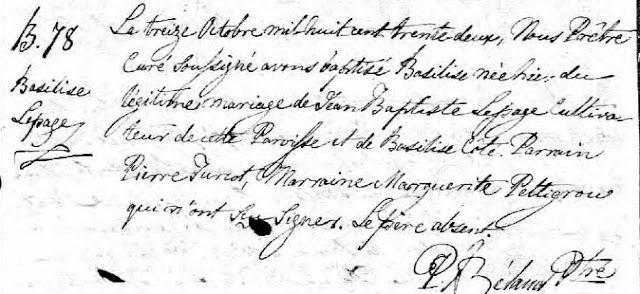 B. 78
Basilise
Lepage
Le treize Octobre mil huit cent trente deux, Nous Prêtre
Curé Soussigné avons baptisé Basilise née hier du
légitime mariage de Jean Baptiste Lepage Cultiva-
teur de cette Paroisse et de Basilise Coté. Parrain
Pierre Turcot, Marraine Marguerite Pettigrow
qui n'ont Seu Signer. Le père absent.
P. Béland Ptre